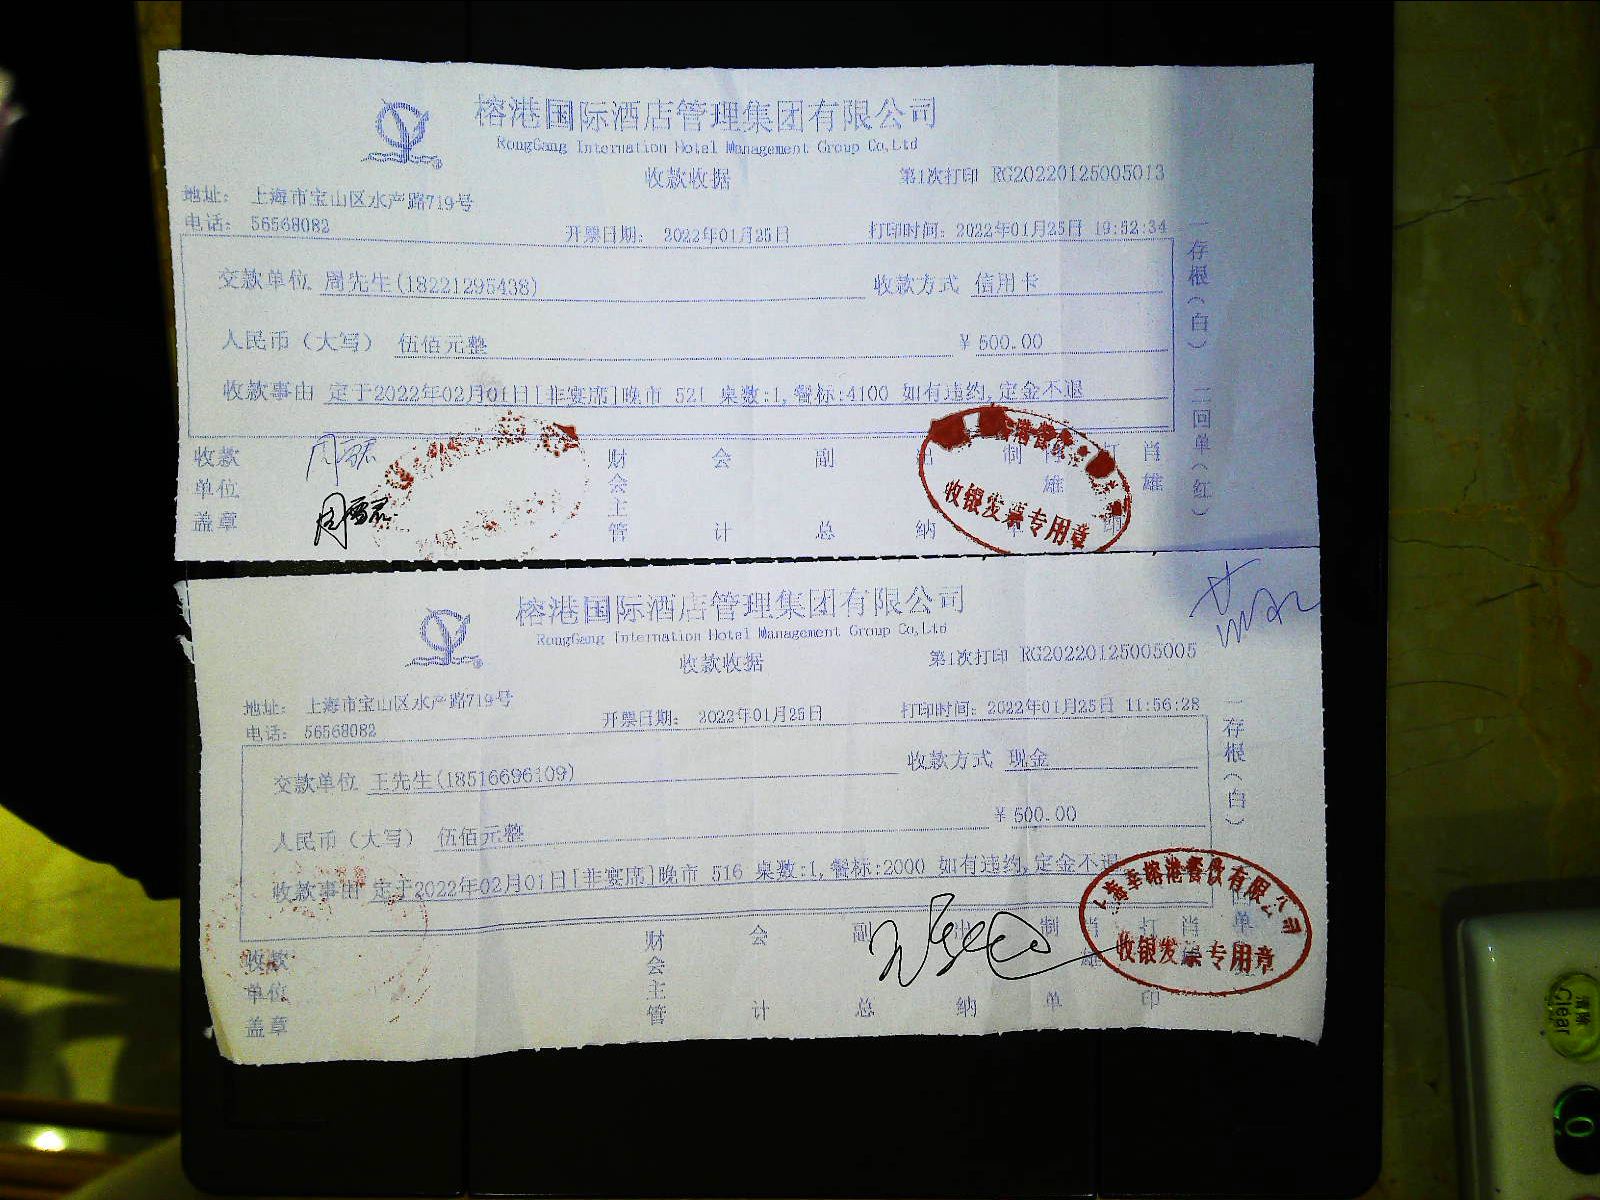 榕港国际酒店管理集团有限公司
RongGang Internation Hotel Management Group Co,Ltd
收款收据
第1次打印 RG20220125005013
地址: 上海市宝山区水产路719号
电话: 56568082
开票日期: 2022年01月25日
打印时间: 2022年01月25日 19:52:34
交款单位 周先生(18221295438)
收款方式 信用卡
人民币（大写） 伍佰元整
￥500.00
收款事由 定于2022年02月01日[非宴席]晚市 521 桌数:1,餐标:4100 如有违约,定金不退
收款单位盖章
财会主管
会计
副总
出纳
制单
肖雄
打
肖雄
收银发票专用章
一存根（白） 二回单（红）
榕港国际酒店管理集团有限公司
RongGang Internation Hotel Management Group Co,Ltd
收款收据
第1次打印 RG20220125005005
地址: 上海市宝山区水产路719号
电话: 56568082
开票日期: 2022年01月25日
打印时间: 2022年01月25日 11:56:28
交款单位 王先生(18516696109)
收款方式 现金
人民币（大写） 伍佰元整
￥500.00
收款事由 定于2022年02月01日[非宴席]晚市 516 桌数:1,餐标:2000 如有违约,定金不退
收款单位盖章
财会主管
会计
副总
出纳
制单
肖雄
打印
肖
收银发票专用章
一存根（白）
单
清除
Clear
0